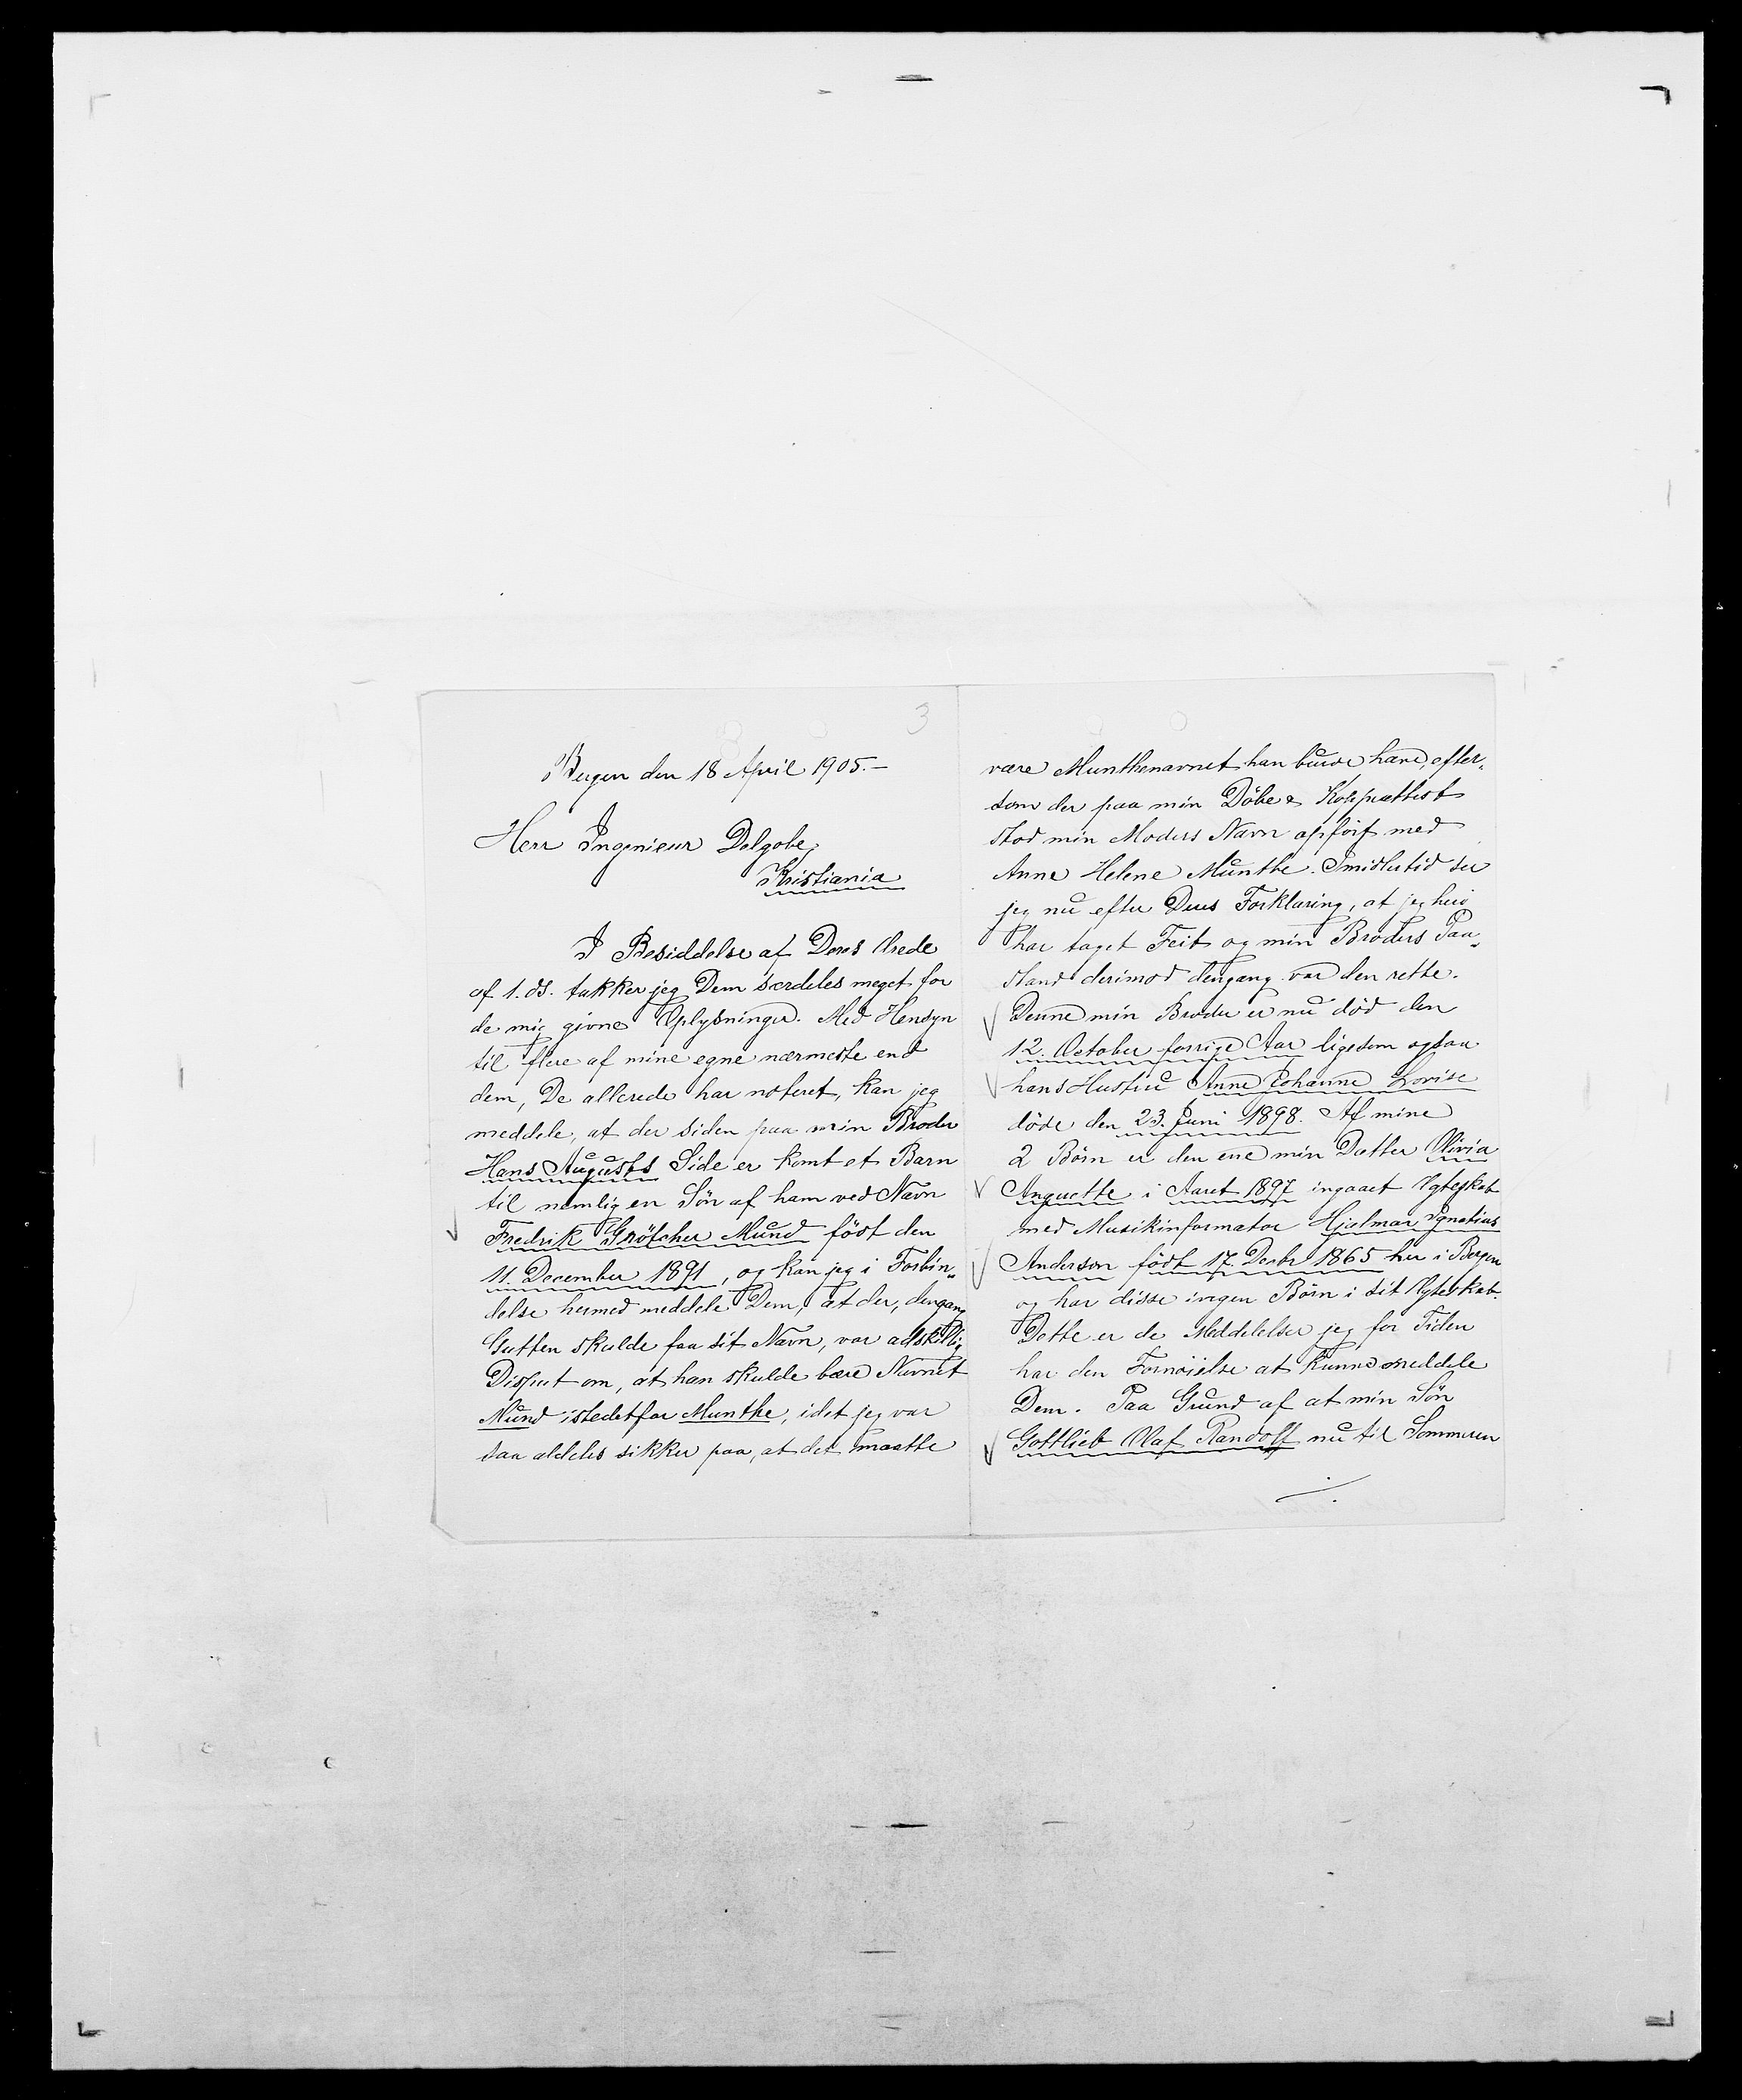 3
Bergen den 18 April 1905.-
Herr Ingenieur Delgobe,
Kristiania
I Besiddelse af Deres Ærede
af 1. ds. takker jeg Dem særdeles meget for
de mig givne Oplysninger. Med Hensyn
til flere af mine egne nærmeste end
dem, De allerede har noteret, kan jeg
meddele, at der siden paa min Broder
Hans Augusts Side er komt et Barn
til nemlig en Sön af ham ved Navn
Fredrik Grötcher Mund födt den
11. December 1891, og kan jeg i Forbin„
delse hermed meddele Dem, at der, dengang
Gutten skulde faa sit Navn, var adskillig
Disput om, at han skulde bære Navnet
Mund istedetfor Munthe, idet jeg var
saa aldeles sikker paa, at det maatte
være Munthenavnet han burde have, efter„
som der paa min Döbe & Kopeattest
stod min Moders Navn opfört med
Anne Helene Munthe. Imidlertid ser
jeg nu efter Deres Forklaring, at jeg heri
har taget Feil og min Broders Paa„
stand derimod dengang var den rette.
Denne min Broder er nu död den
12. October forrige Aar ligesom ogsaa
hans Hustru Anne Johanne Lovise
döde den 23. Juni 1898. Af mine
2 Börn er den ene min Datter Olivia
Anguette i Aaret 1897 ingaaet Ægteskab
med Musikinformator Hjalmar Ignatius
Anderson födt 17. Decbr 1865 her i Bergen
og har disse ingen Börn i sit Ægteskab.
Dette er de Meddelelser jeg for Tiden
har den Fornöielse at kunne meddele
Dem. Paa Grund af at min Sön
Gottlieb Olaf Randolf nu til Sommeren
./.